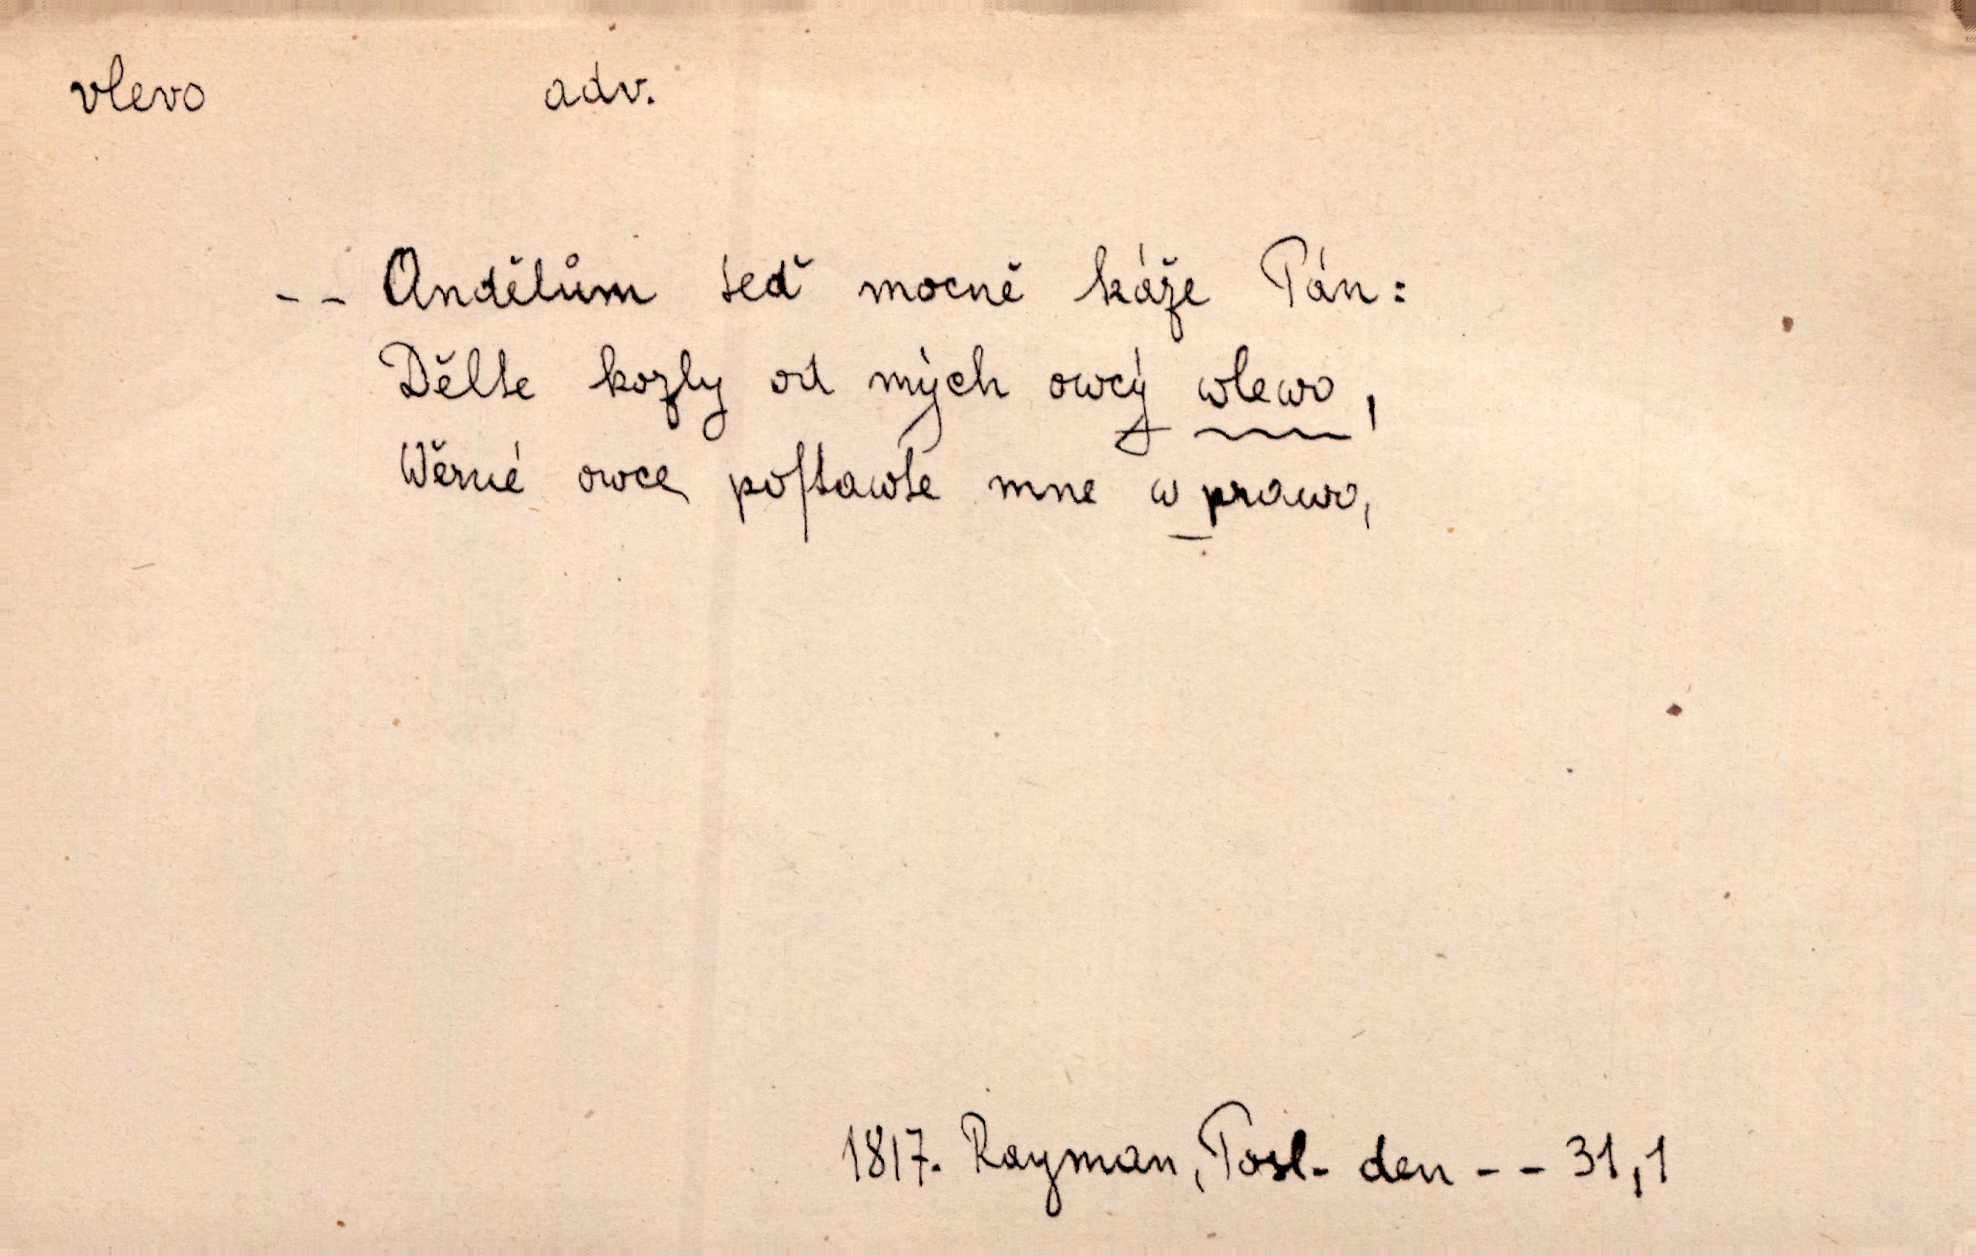 vlevo adv.
-- Andělům teď mocně káže Pán:
Dělte kozly od mých owcý wlewo,
Wěrné owce poſtawte mne w prawo,
1817. Rayman, Posl. den -- 31,1